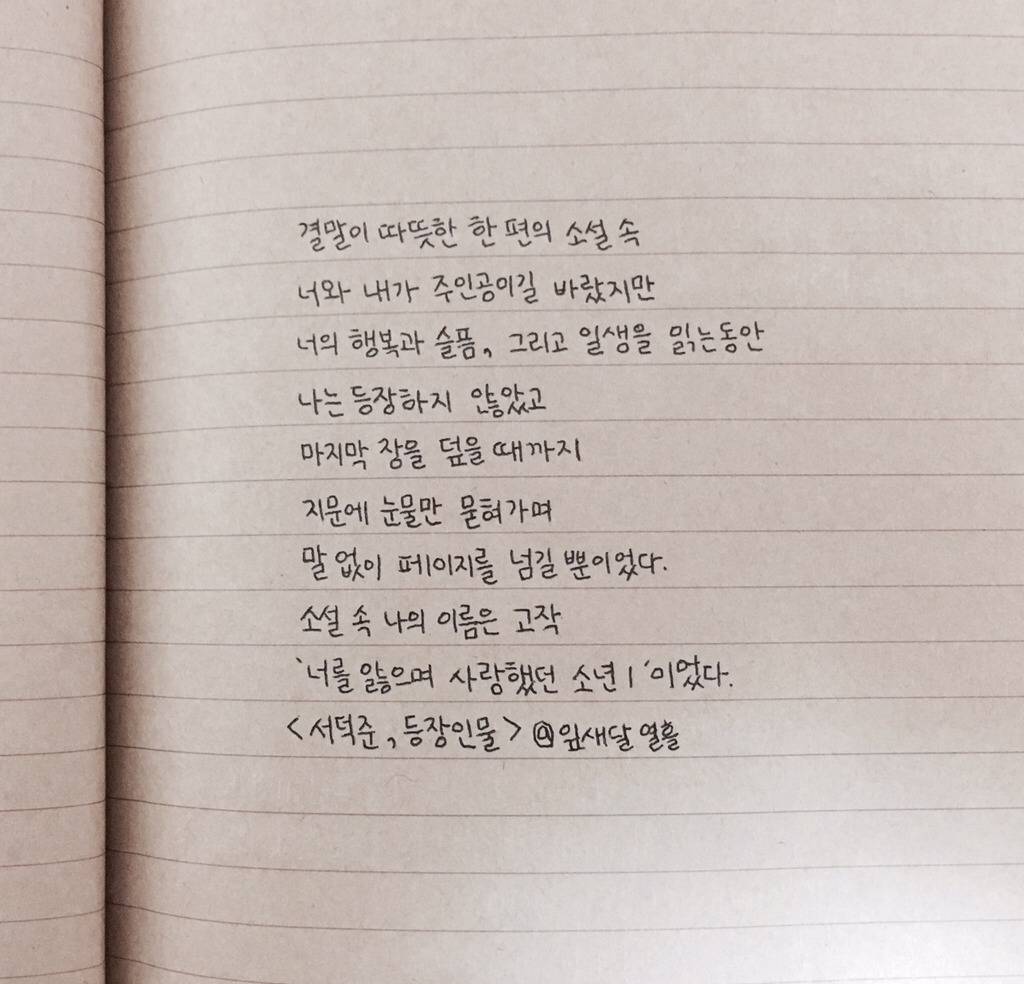 결말이 따뜻한 한 편의 소설 속
너와 내가 주인공이길 바랐지만
너의 행복과 슬픔, 그리고 일생을 읽는동안
나는 등장하지 않았고
마지막 장을 덮을 때까지
지문에 눈물만 묻혀가며
말 없이 페이지를 넘길 뿐이었다.
소설 속 나의 이름은 고작
'너를 앓으며 사랑했던 소년 1'이었다.
<서덕준, 등장인물> @잎새달 열흘